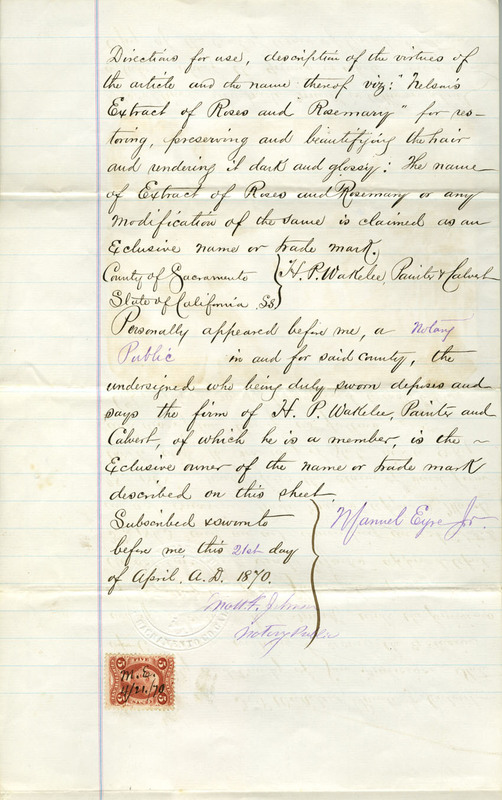 Directions for use, description of the virtues of
the article and the name thereof viz: "Nelson's
Extract of Roses and "Rosemary" for res-
toring, preserving and beautifying the hair
and rendering it dark and glossy: The name
of Extract of Roses and Rosemary or any
modification of the same is claimed as an
Exclusive name or trade mark.
County of Sacramento } H. P. Wakelee, Painter & Calvert
State of California SS
Personally appeared before me, a Notary
Public in and for said county, the
undersigned who being duly sworn deposes and
says the firm of H. P. Wakelee, Painter and
Calvert, of which he is a member, is the ~
Exclusive owner of the name or trade mark
described on this sheet
Subscribed & sworn to } Manuel Eyre Jr.
before me this 21st day
of April. A.D. 1870.
Notary Public
FIVE
M. E.
4/21/70